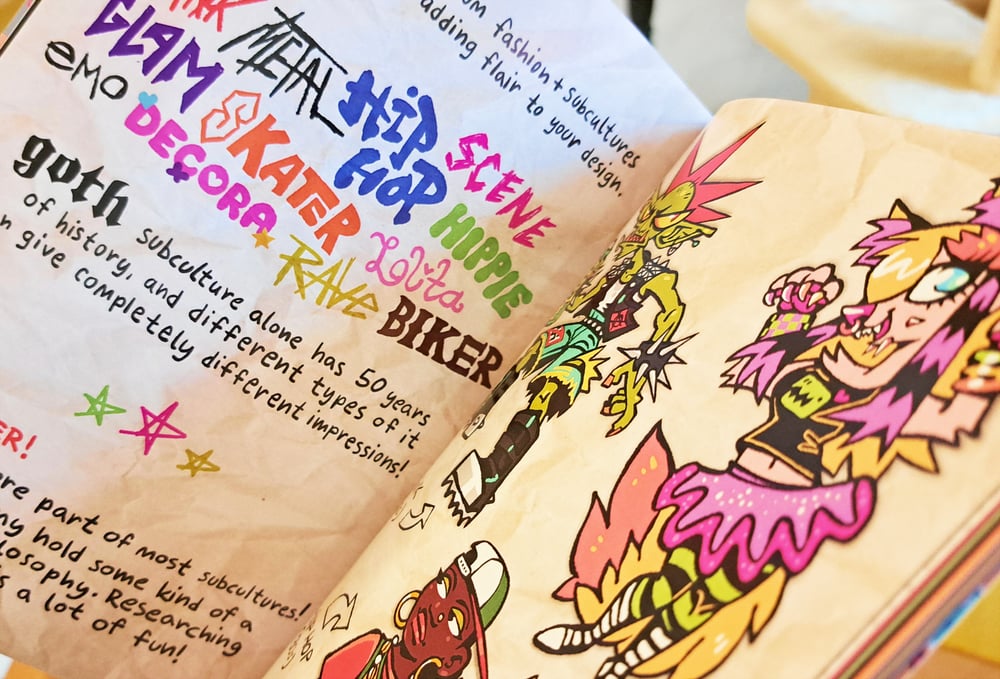 fashion + subcultures
adding flair to your design.
METAL
GLAM
HiP
HOP
SCENE
emo
SKATER
DECORA
HIPPIE
Lolita
RAVe
BIKER
goth subculture alone has 50 years
of history, and different types of it
give completely different impressions!
ER!
part of most subcultures!
hold some kind of a
Researching
a lot of fun!